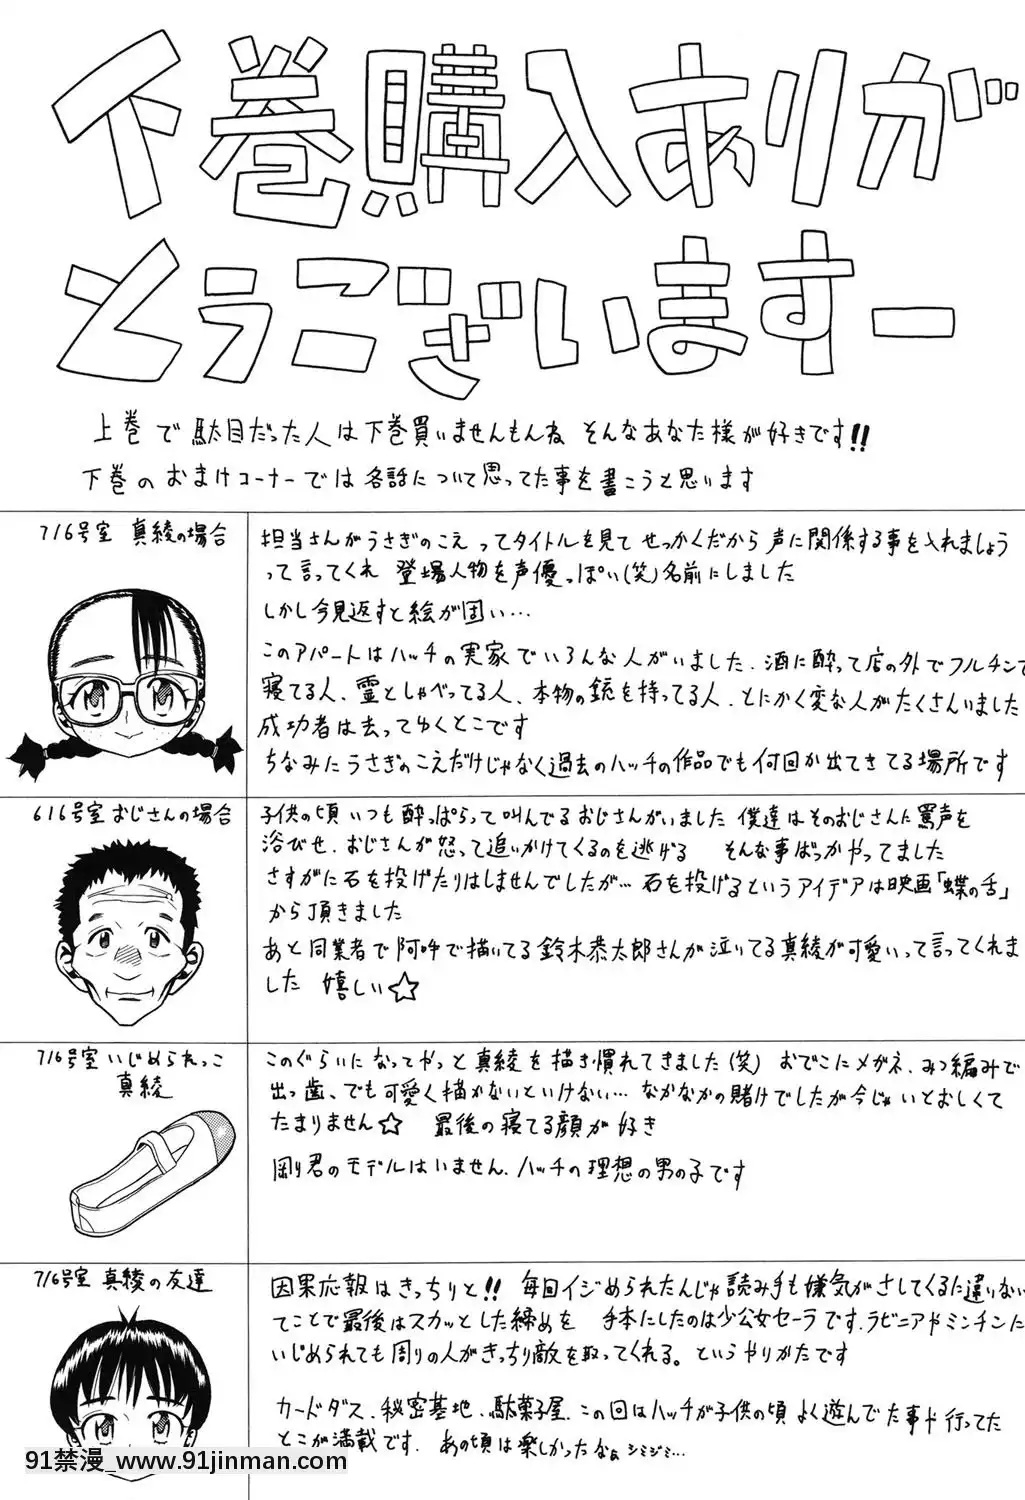 下巻購入ありが
とうございますー
上巻で駄目だった人は下巻買いませんもんね そんなあなた様が好きです!!
下巻のおまけコーナーでは各話について思ってた事を書こうと思います
716号室 真綾の場合
担当さんがうさぎのこえ ってタイトルを見て せっかくだから声に関係する事を入れましょう
って言ってくれ 登場人物を声優っぽい(笑)名前にしました
しかし今見返すと絵が固い…
このアパートはハッチの実家でいろんな人がいました.酒に酔って店の外でフルチンで
寝てる人、霊としゃべってる人、本物の銃を持ってる人.とにかく変な人がたくさんいました
成功者は去ってゆくとこです
ちなみにうさぎのこえだけじゃなく過去のハッチの作品でも何回か出てきてる場所です
616号室おじさんの場合
子供の頃いつも酔っぱらって叫んでるおじさんがいました 僕達はそのおじさんに罵声を
浴びせ、おじさんが怒って追いかけてくるのを逃げる そんな事ばっかやってました
さすがに石を投げたりはしませんでしたが…石を投げるというアイデアは映画「蝶の舌」
から頂きました
あと同業者で阿吽で描いてる鈴木恭太郎さんが泣いてる真綾が可愛いって言ってくれま
した 嬉しい☆
716号室いじめられっこ
真綾
このぐらいになってやっと真綾を描き慣れてきました(笑) おでこにメガネ、みつ編みで
出っ歯、でも可愛く描かないといけない…なかなかの賭けでしたが今じゃいとおしくて
たまりません☆ 最後の寝てる顔が好き
剛り君のモデルはいません、ハッチの理想の男の子です
716号室 真綾の友達
因果応報はきっちりと!! 毎回イジめられたんじゃ読み手も嫌気がさしてくるに違いない
てことで最後はスカッとした締めを 手本にしたのは少公女セーラです.ラビニアやミンチンに
いじめられても周りの人がきっちり敵を取ってくれる。というやりかたです
カードダス、秘密基地、駄菓子屋、この回はハッチが子供の頃よく遊んでた事や行ってた
とこが満載です. あの頃は楽しかったなぁ シミジミ…
91禁漫_www.91jinman.com